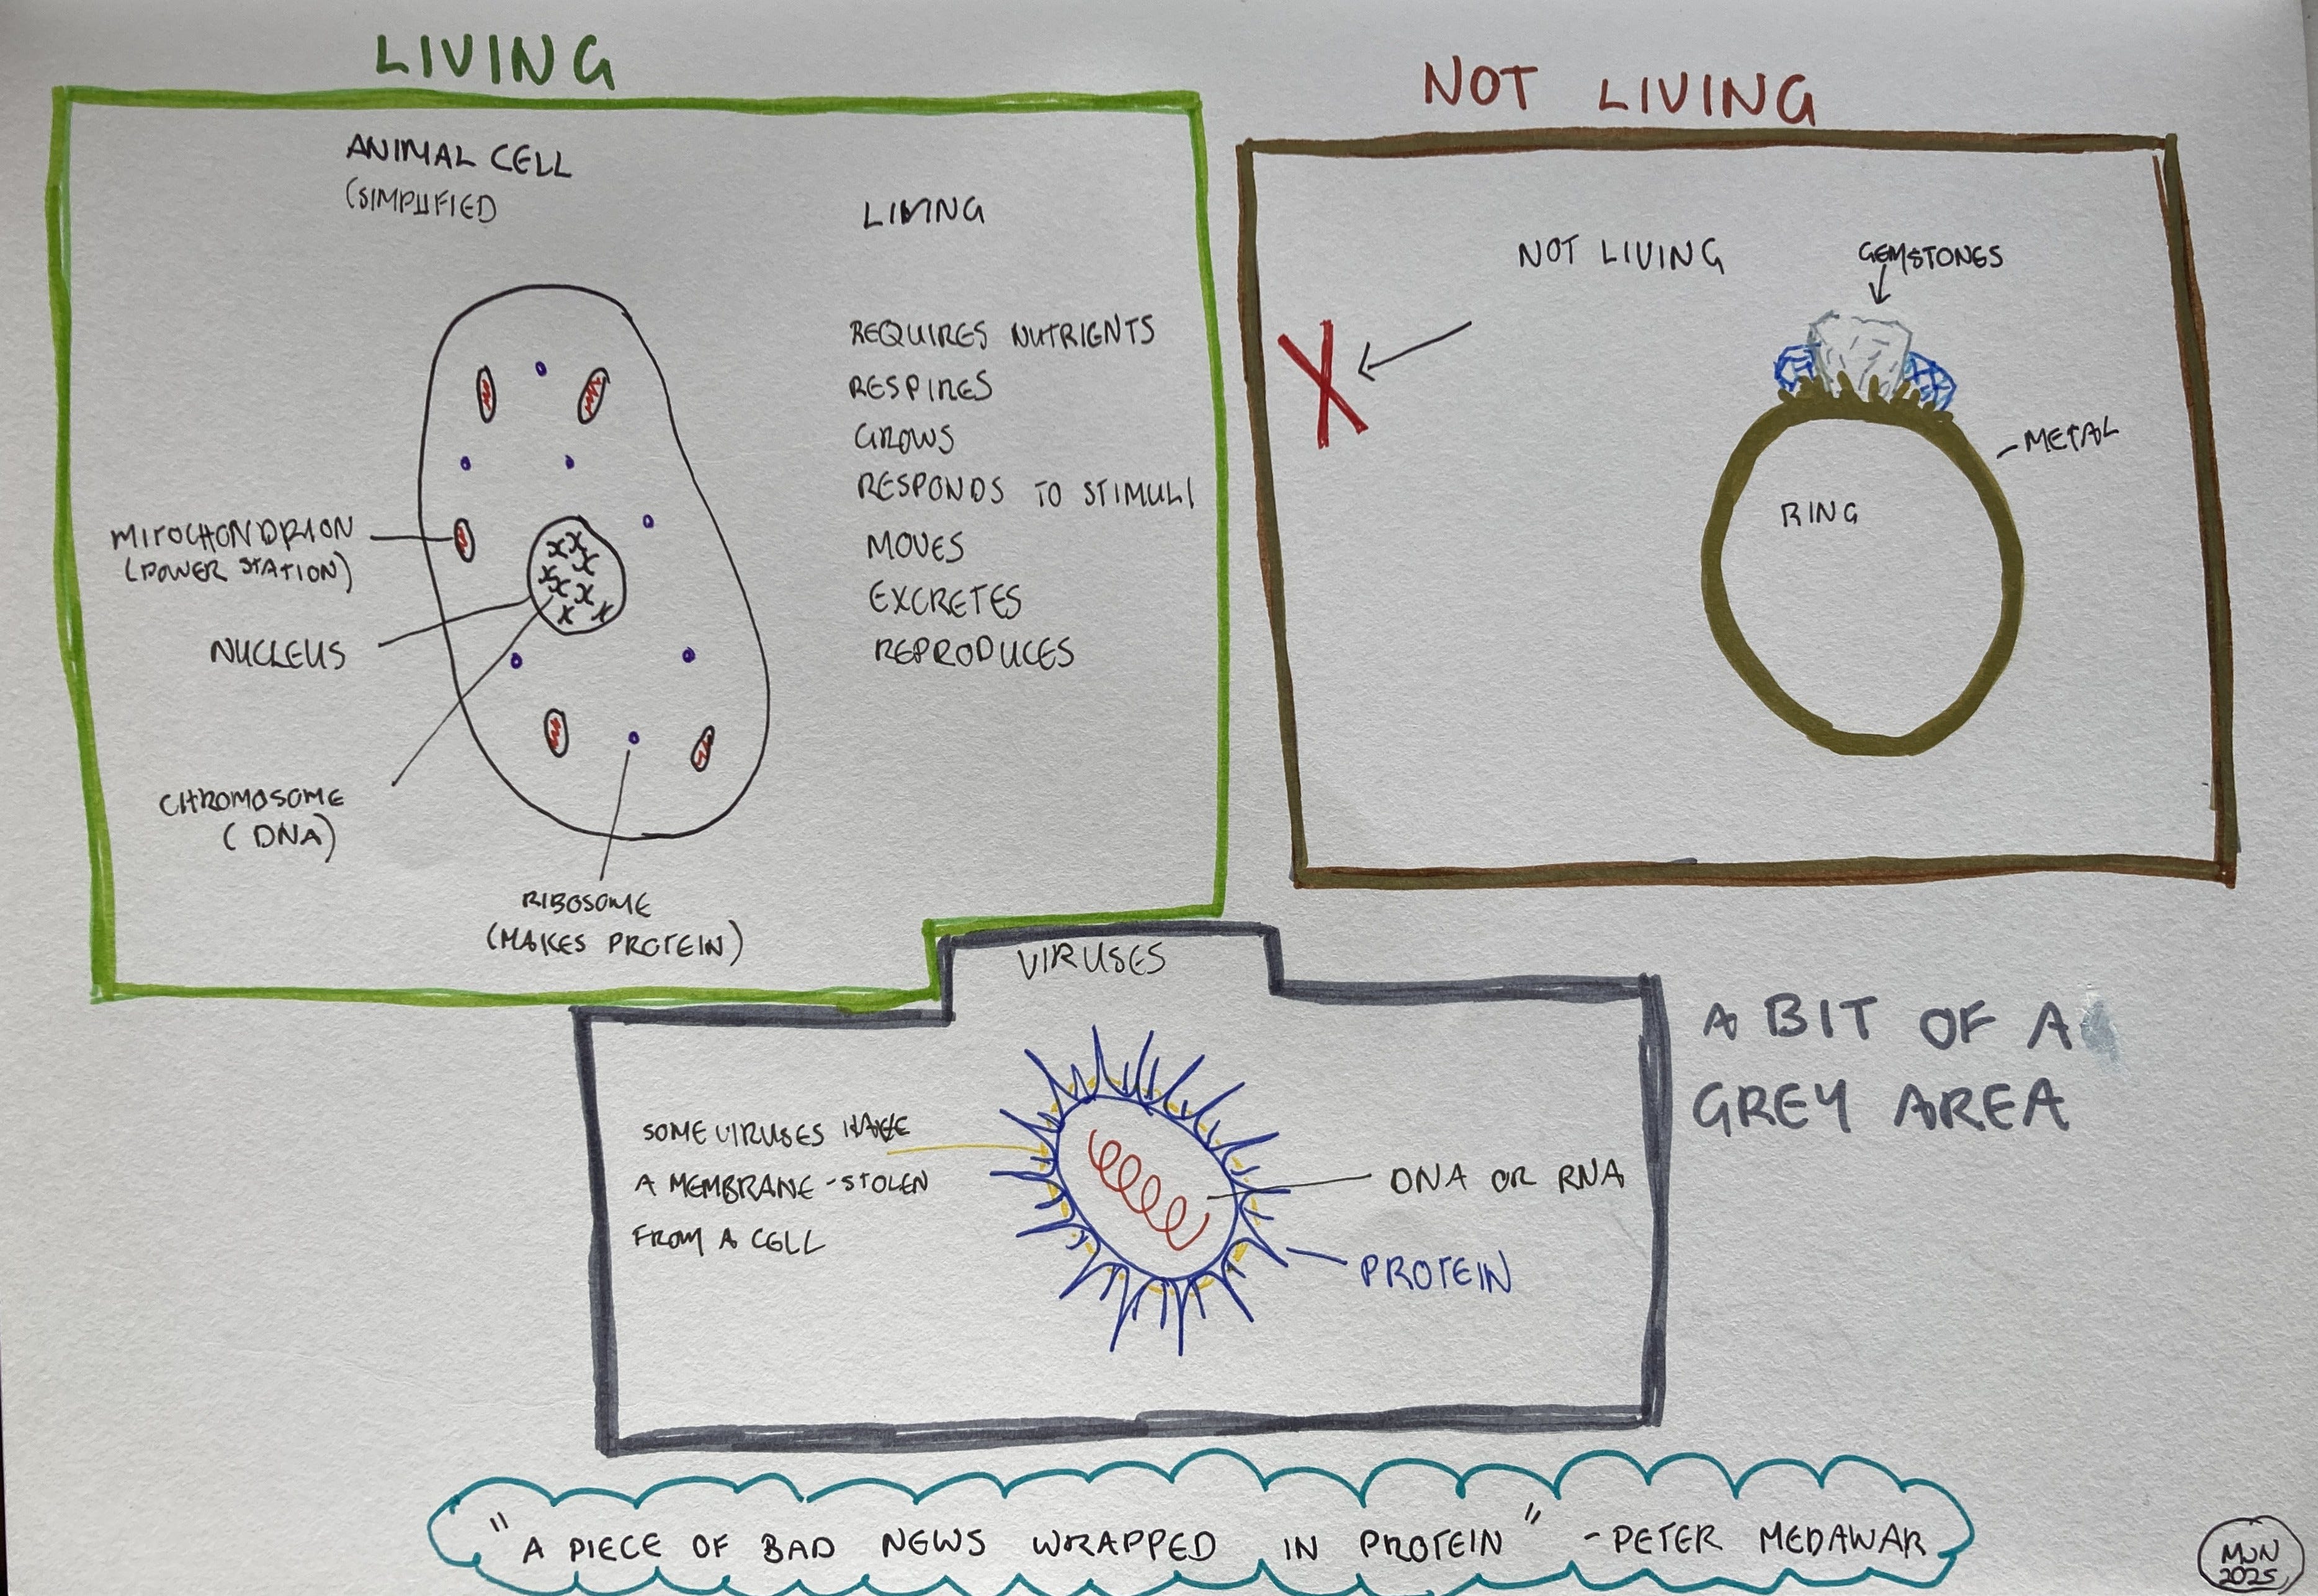 LIVING
ANIMAL CELL
(SIMPLIFIED
MITOCHONDRION
(POWER STATION)
NUCLEUS
CHROMOSOME
(DNA)
RIBOSOME
(MAKES PROTEIN)
LIVING
REQUIRES NUTRIENTS
RESPIRES
GROWS
RESPONDS TO STIMULI
MOVES
EXCRETES
REPRODUCES
NOT LIVING
NOT LIVING
X
GEMSTONES
METAL
RING
VIRUSES
SOME VIRUSES HAVE
A MEMBRANE - STOLEN
FROM A CELL
DNA OR RNA
PROTEIN
A BIT OF A
GREY AREA
"A PIECE OF BAD NEWS WRAPPED IN PROTEIN" - PETER MEDAWAR
MJN
2025